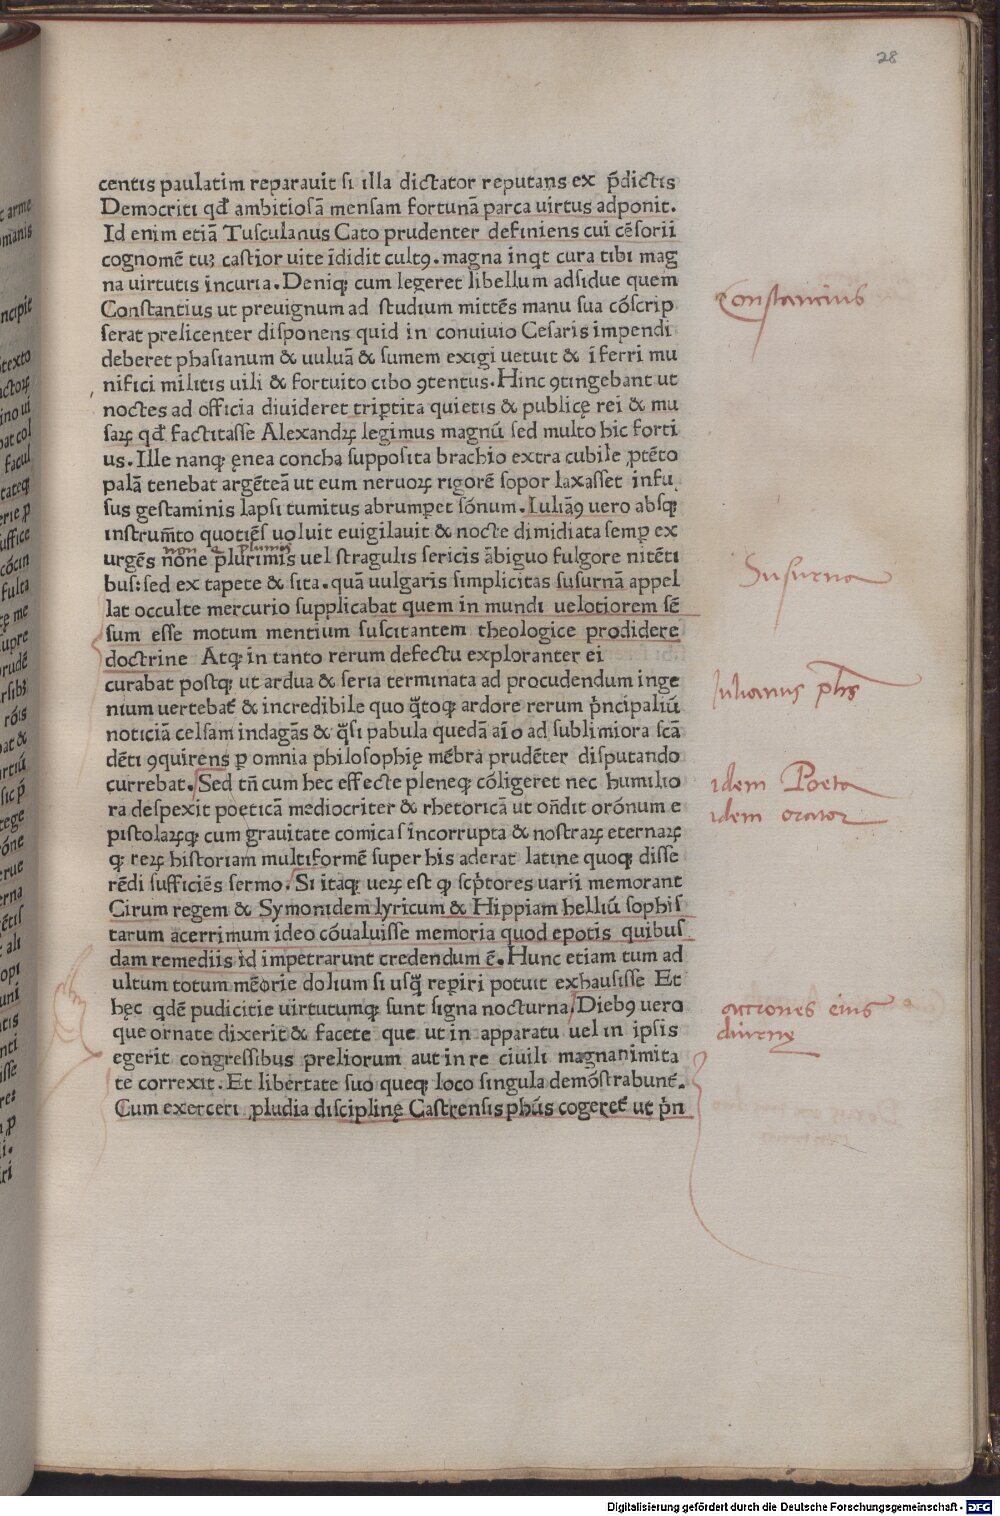 28
centis paulatim reparauit si illa dictator reputans ex p̄dictis
Democriti qđ ambitiosā mensam fortunā parca uirtus adponit.
Id enim etiā Tusculanus Cato prudenter definiens cui cēsorii
cognomē tuꝫ castior uite īdidit cultꝯ. magna inqt cura tibi mag
na uirtutis incuria. Deniqꝫ cum legeret libellum adsidue quem
Constantius ut preuignum ad studium mittēs manu sua cōscrip
serat prelicenter disponens quid in conuiuio Cesaris impendi
deberet phasianum & uuluā & sumem exigi uetuit & īferri mu
nifici militis uili & fortuito cibo ꝯtentus. Hinc ꝯtingebant ut
noctes ad officia diuideret triꝑtita quietis & publicę rei & mu
saꝝ qđ factitasse Alexandꝝ legimus magnū sed multo hic forti
us. Ille nanqꝫ ęnea concha supposita brachio extra cubile ꝓtēto
palā tenebat argētēā ut eum neruoꝝ rigorē sopor laxasset infu
sus gestaminis lapsi tumitus abrumꝑet sōnum. Iuliāꝯ uero absqꝫ
instrum̄to quotiēs uoluit euigilauit & nocte dimidiata semꝑ ex
non e plumis
urgēs nōne plurimis uel stragulis sericis ābiguo fulgore nitēti
bus: sed ex tapete & sita. quā uulgaris simplicitas susurnā appel
lat occulte mercurio supplicabat quem in mundi uelotiorem sē
sum esse motum mentium suscitantem theologice prodidere
doctrine Atqꝫ in tanto rerum defectu exploranter ei
curabat postqꝫ ut ardua & seria terminata ad procudendum inge
nium uertebat & incredibile quo q̄toqꝫ ardore rerum pͥncipaliū
noticiā celsam indagās & q̄si pabula quedā aīo ad sublimiora scā
dēti ꝯquirens ꝑ omnia philosophię mēbra prudēter disputando
currebat. Sed tn̄ cum hec effecte pleneqꝫ cōligeret nec humilio
ra despexit poeticā mediocriter & rhetoricā ut on̄dit orōnum e
pistolaꝝqꝫ cum grauitate comicas incorrupta & nostraꝝ eternaꝝ
qꝫ reꝝ historiam multiformē super his aderat latine quoqꝫ disse
rēdi sufficiēs sermo. Si itaqꝫ ueꝝ est qꝫ scͥptores uarii memorant
Cirum regem & Symonidem lyricum & Hippiam helliū sophis
tarum acerrimum ideo cōualuisse memoria quod epotis quibus
dam remediis id impetrarunt credendum ē. Hunc etiam tum ad
ultum totum mēorie dolium si usq̄ reꝑiri potuit exhausisse Et
hęc qdē pudicitie uirtutumqꝫ sunt signa nocturna. Diebꝯ uero
que ornate dixerit & facete que ut in apparatu uel in ipsis
egerit congressibus preliorum aut in re ciuili magnanimita
te correxit. Et libertate suo queqꝫ loco singula demōstrabunt.
Cum exerceri ꝓludia disciplinę Castrensis phūs cogeret ut pͥn
Constancius
Susurna
Iulianus phs
idem Poeta
idem orator
actiones eius
diurnę
Digitalisierung gefördert durch die Deutsche Forschungsgemeinschaft - DFG